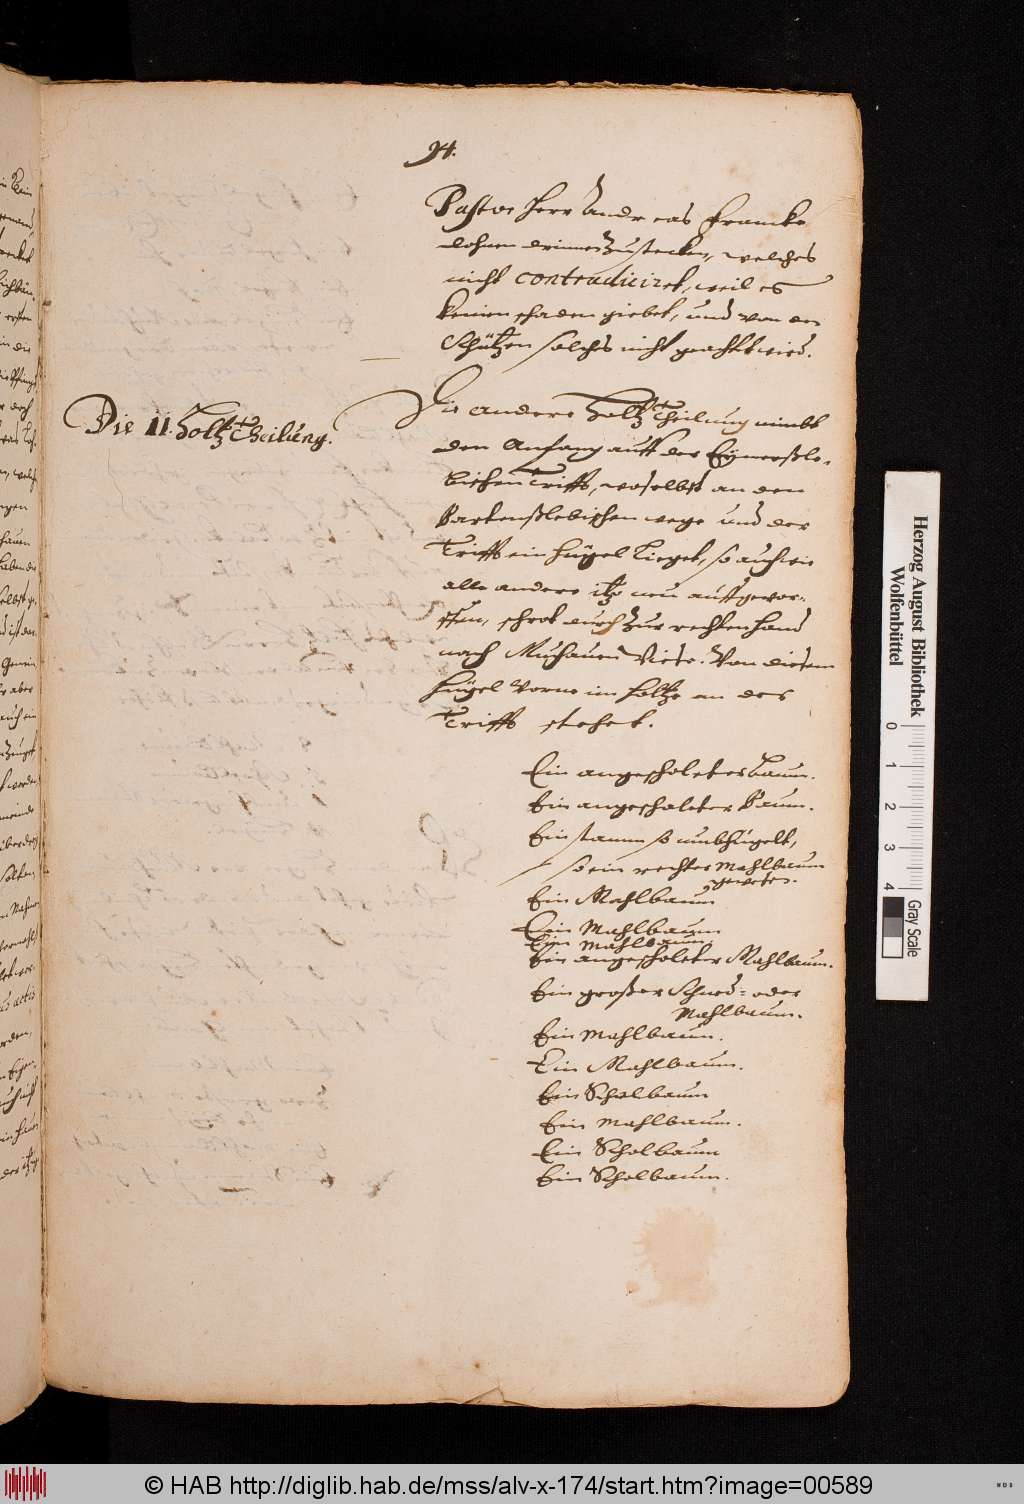 94.
Pastor Herr Andreas Francke
dohnen drinnen zu stecken, welches
nicht contradiciret, weil es
keinen schaden giebet, und von den
Schützen solches nicht geachtet wird.
Die II. Holtz Theilung.
Die andere Holtz Theilung nimbt
den Anfang auff der Eÿmersle-
bischen Trifft, woselbst an den
Bartenßlebischen wege und der
Trifft ein hügel lieget, so auch wie
alle andere itzo neu auffgewor-
ffen, schrot durch zur rechten hand
nach Wiese. Von diesem
hügel vorne im holtze an der
Trifft stehet.
Ein angeschaleter baum.
Ein angeschaleter baum.
Ein stamm so umbhügelt,
so ein rechter Mahlbaum
gewesen.
Ein Mahlbaum
Ein Mahlbaum
Ein Mahlbaum
Ein angeschaleter Mahlbaum.
Ein großer Schned- oder
Mahlbaum.
Ein Mahlbaum.
Ein Mahlbaum.
Ein Schalbaum
Ein Mahlbaum.
Ein Schalbaum
Ein Schalbaum.
Herzog August Bibliothek
Wolfenbüttel
0 1 2 3 4
Gray Scale
© HAB http://diglib.hab.de/mss/alv-x-174/start.htm?image=00589